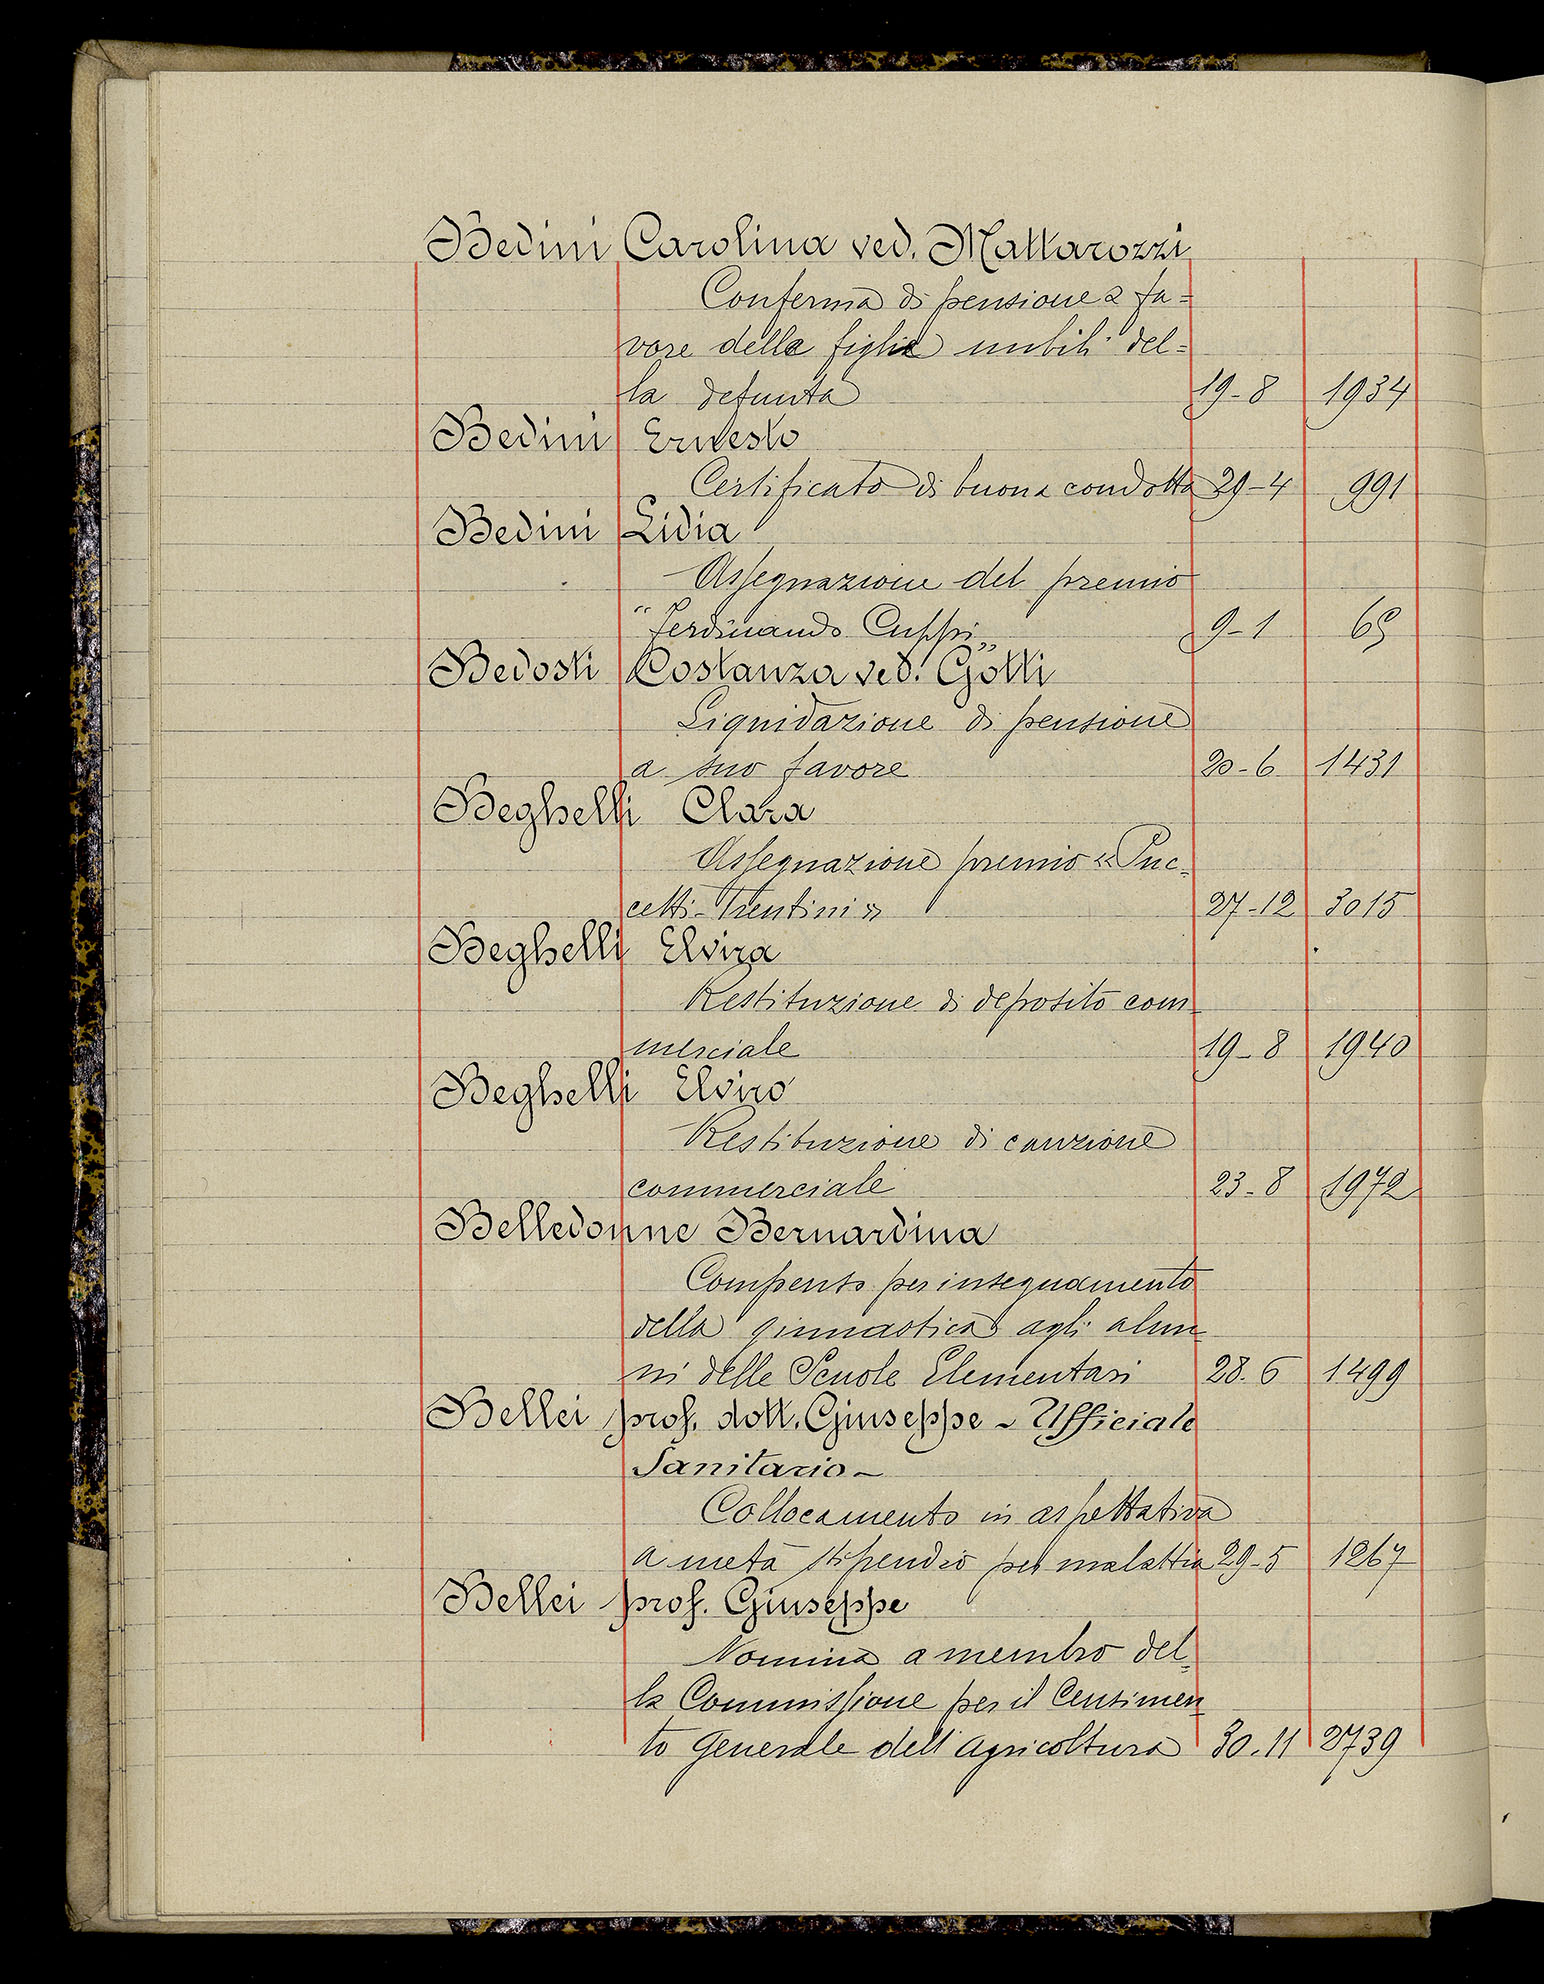 Bedini Carolina ved. Mattarozzi
Conferma di pensione a fa=
vore delle figlie nubili del=
la defunta 19-8 1934
Bedini Ernesto
Certificato di buona condotta 29-4 991
Bedini Lidia
Assegnazione del premio
"Ferdinando Cuppi„ 9-1 65
Bedosti Costanza ved. Gotti
Liquidazione di pensione
a suo favore 20-6 1431
Beghelli Clara
Assegnazione premio «Puc=
cetti-Trentini» 27-12 3015
Beghelli Elvira
Restituzione di deposito com-
merciale 19-8 1940
Beghelli Elviro
Restituzione di cauzione
commerciale 23-8 1972
Belledonne Bernardina
Compenso per insegnamento
della ginnastica agli alun-
ni delle Scuole Elementari 28.6 1499
Bellei prof. dott. Giuseppe - Ufficiale
Sanitario-
Collocamento in aspettativa
a metà stipendio per malattia 29-5 1267
Bellei prof. Giuseppe
Nomina a membro del-
la Commissione per il Censimen-
to Generale dell'Agricoltura 30.11 2739